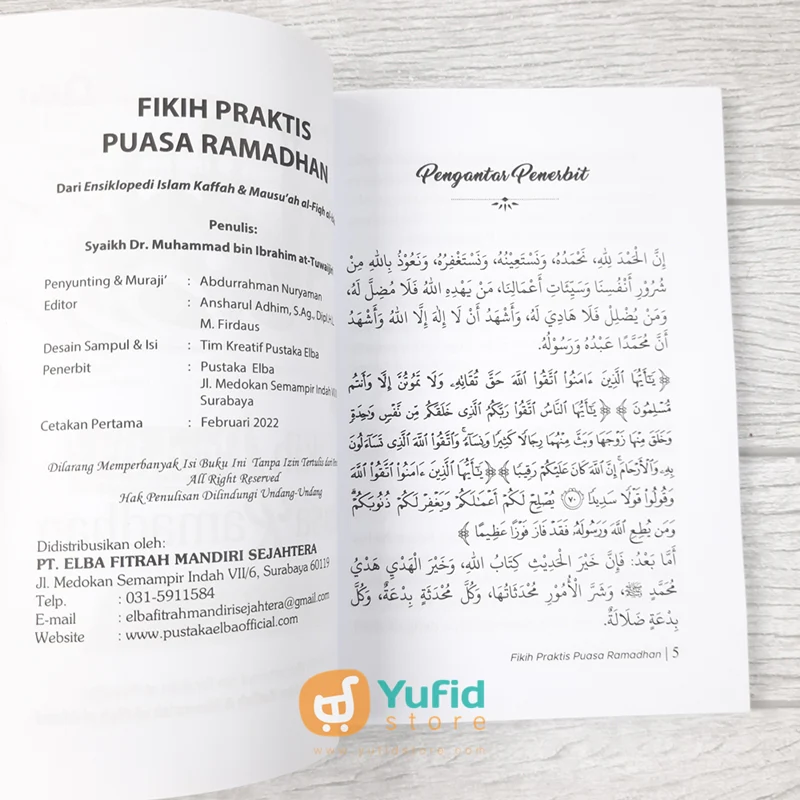 FIKIH PRAKTIS
PUASA RAMADHAN
Dari Ensiklopedi Islam Kaffah & Mausu'ah al-Fiqh
Penulis:
Syaikh Dr. Muhammad bin Ibrahim
Penyunting & Muraji' : Abdurrahman Nuryaman
Editor : Ansharul Adhim, S.Ag,
M. Firdaus
Desain Sampul & Isi : Tim Kreatif Pustaka Elba
Penerbit : Pustaka Elba
Jl. Medokan Semampir Indah
Surabaya
Cetakan Pertama : Februari 2022
Dilarang Memperbanyak Isi Buku Ini Tanpa Izin Tertulis dari
All Right Reserved
Hak Penulisan Dilindungi Undang-Undang
Didistribusikan oleh:
PT. ELBA FITRAH MANDIRI SEJAHTERA
Jl. Medokan Semampir Indah VII/6, Surabaya 60119
Telp. : 031-5911584
E-mail : elbafitrahmandirisejahtera@gmail.com
Website : www.pustakaelbaofficial.com
Pengantar Penerbit
إِنَّ الْحَمْدَ لِلهِ، نَحْمَدُهُ، وَنَسْتَعِيْنُهُ، وَنَسْتَغْفِرُهُ، وَنَعُوْذُ بِاللهِ مِنْ
شُرُوْرِ أَنْفُسِنَا وَسَيِّئَاتِ أَعْمَالِنَا، مَنْ يَهْدِهِ اللهُ فَلَا مُضِلَّ لَهُ،
وَمَنْ يُضْلِلْ فَلَا هَادِيَ لَهُ، وَأَشْهَدُ أَنْ لَا إِلٰهَ إِلَّا اللهُ وَأَشْهَدُ
أَنَّ مُحَمَّدًا عَبْدُهُ وَرَسُوْلُهُ.
﴿ يَٰٓأَيُّهَا ٱلَّذِينَ ءَامَنُوا۟ ٱتَّقُوا۟ ٱللَّهَ حَقَّ تُقَاتِهِۦ وَلَا تَمُوتُنَّ إِلَّا وَأَنتُم
مُّسْلِمُونَ ﴾ ﴿ يَٰٓأَيُّهَا ٱلنَّاسُ ٱتَّقُوا۟ رَبَّكُمُ ٱلَّذِى خَلَقَكُم مِّن نَّفْسٍ وَٰحِدَةٍ
وَخَلَقَ مِنْهَا زَوْجَهَا وَبَثَّ مِنْهُمَا رِجَالًا كَثِيرًا وَنِسَآءً ۚ وَٱتَّقُوا۟ ٱللَّهَ ٱلَّذِى تَسَآءَلُونَ
بِهِۦ وَٱلْأَرْحَامَ ۚ إِنَّ ٱللَّهَ كَانَ عَلَيْكُمْ رَقِيبًا ﴾ ﴿ يَٰٓأَيُّهَا ٱلَّذِينَ ءَامَنُوا۟ ٱتَّقُوا۟ ٱللَّهَ
وَقُولُوا۟ قَوْلًا سَدِيدًا ۝٧٠ يُصْلِحْ لَكُمْ أَعْمَٰلَكُمْ وَيَغْفِرْ لَكُمْ ذُنُوبَكُمْ ۗ
وَمَن يُطِعِ ٱللَّهَ وَرَسُولَهُۥ فَقَدْ فَازَ فَوْزًا عَظِيمًا ﴾
أَمَّا بَعْدُ: فَإِنَّ خَيْرَ الْحَدِيْثِ كِتَابُ اللهِ، وَخَيْرَ الْهَدْيِ هَدْيُ
مُحَمَّدٍ ﷺ، وَشَرَّ الْأُمُوْرِ مُحْدَثَاتُهَا، وَكُلَّ مُحْدَثَةٍ بِدْعَةٌ، وَكُلَّ
بِدْعَةٍ ضَلَالَةٌ.
Fikih Praktis Puasa Ramadhan | 5
Yufid
store
www.yufidstore.com